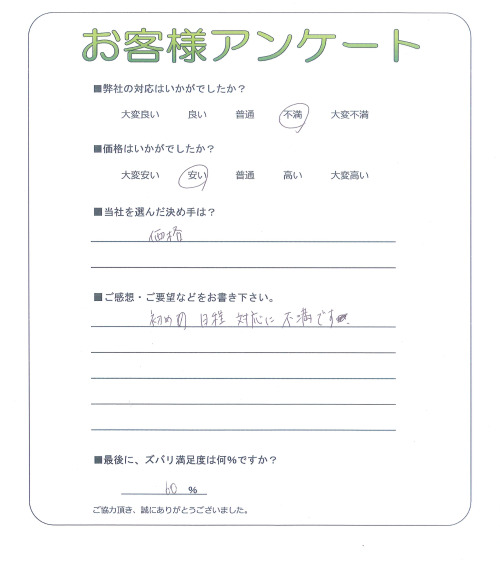 お客様アンケート
■弊社の対応はいかがでしたか？
大変良い 良い 普通 不満 大変不満
■価格はいかがでしたか？
大変安い 安い 普通 高い 大変高い
■当社を選んだ決め手は？
価格
■ご感想・ご要望などをお書き下さい。
初めの 日程 対応に 不満です
■最後に、ズバリ満足度は何%ですか？
60 %
ご協力頂き、誠にありがとうございました。